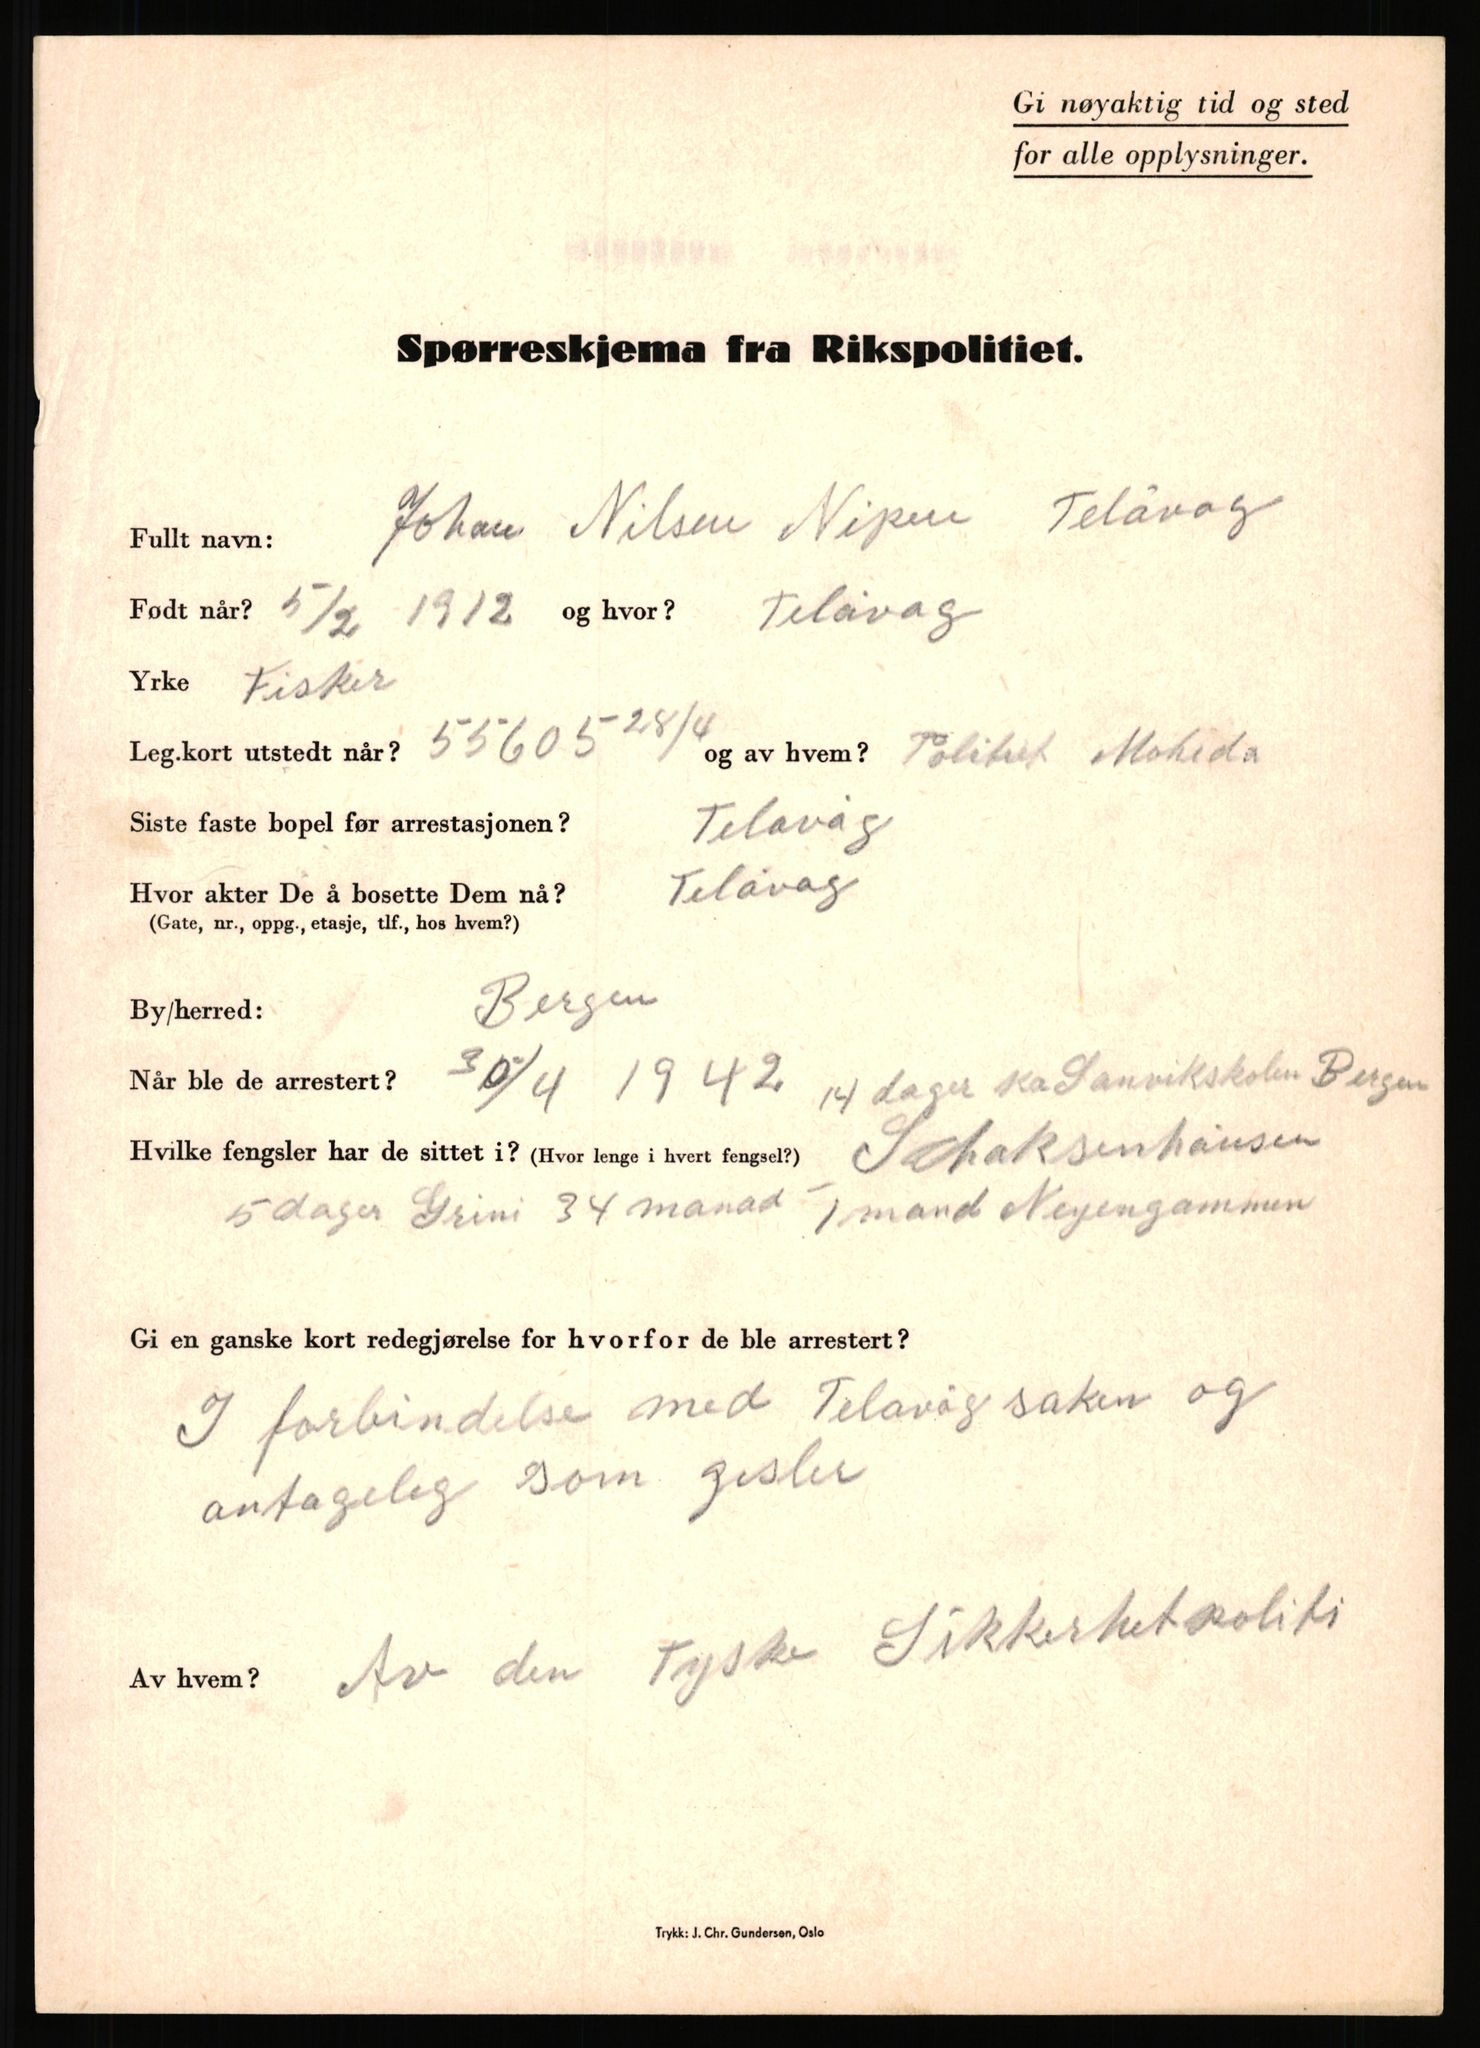 Gi nøyaktig tid og sted
for alle opplysninger.
Spørreskjema fra Rikspolitiet.
Fullt navn: Johan Nilsen Nipen Telåvag
Født når? 5/2 1912 og hvor? Telåvag
Yrke Fisker
Leg.kort utstedt når? 55605 28/4 og av hvem? Politiet Moheda
Siste faste bopel før arrestasjonen? Telavåg
Hvor akter De å bosette Dem nå? Telåvag
(Gate, nr., oppg., etasje, tlf., hos hvem?)
By/herred: Bergen
Når ble de arrestert? 30/4 1942 14 dager på Sanvikskolen Bergen
Hvilke fengsler har de sittet i? (Hvor lenge i hvert fengsel?) Schaksenhausen
5 dager Grini 34 manad - 1 mand Neyengammen
Gi en ganske kort redegjørelse for hvorfor de ble arrestert?
I forbindelse med Telavåg saken og
antageleg som gisler
Av hvem? Av den Tyske Sikkerhetpoliti
Trykk: J. Chr. Gundersen, Oslo